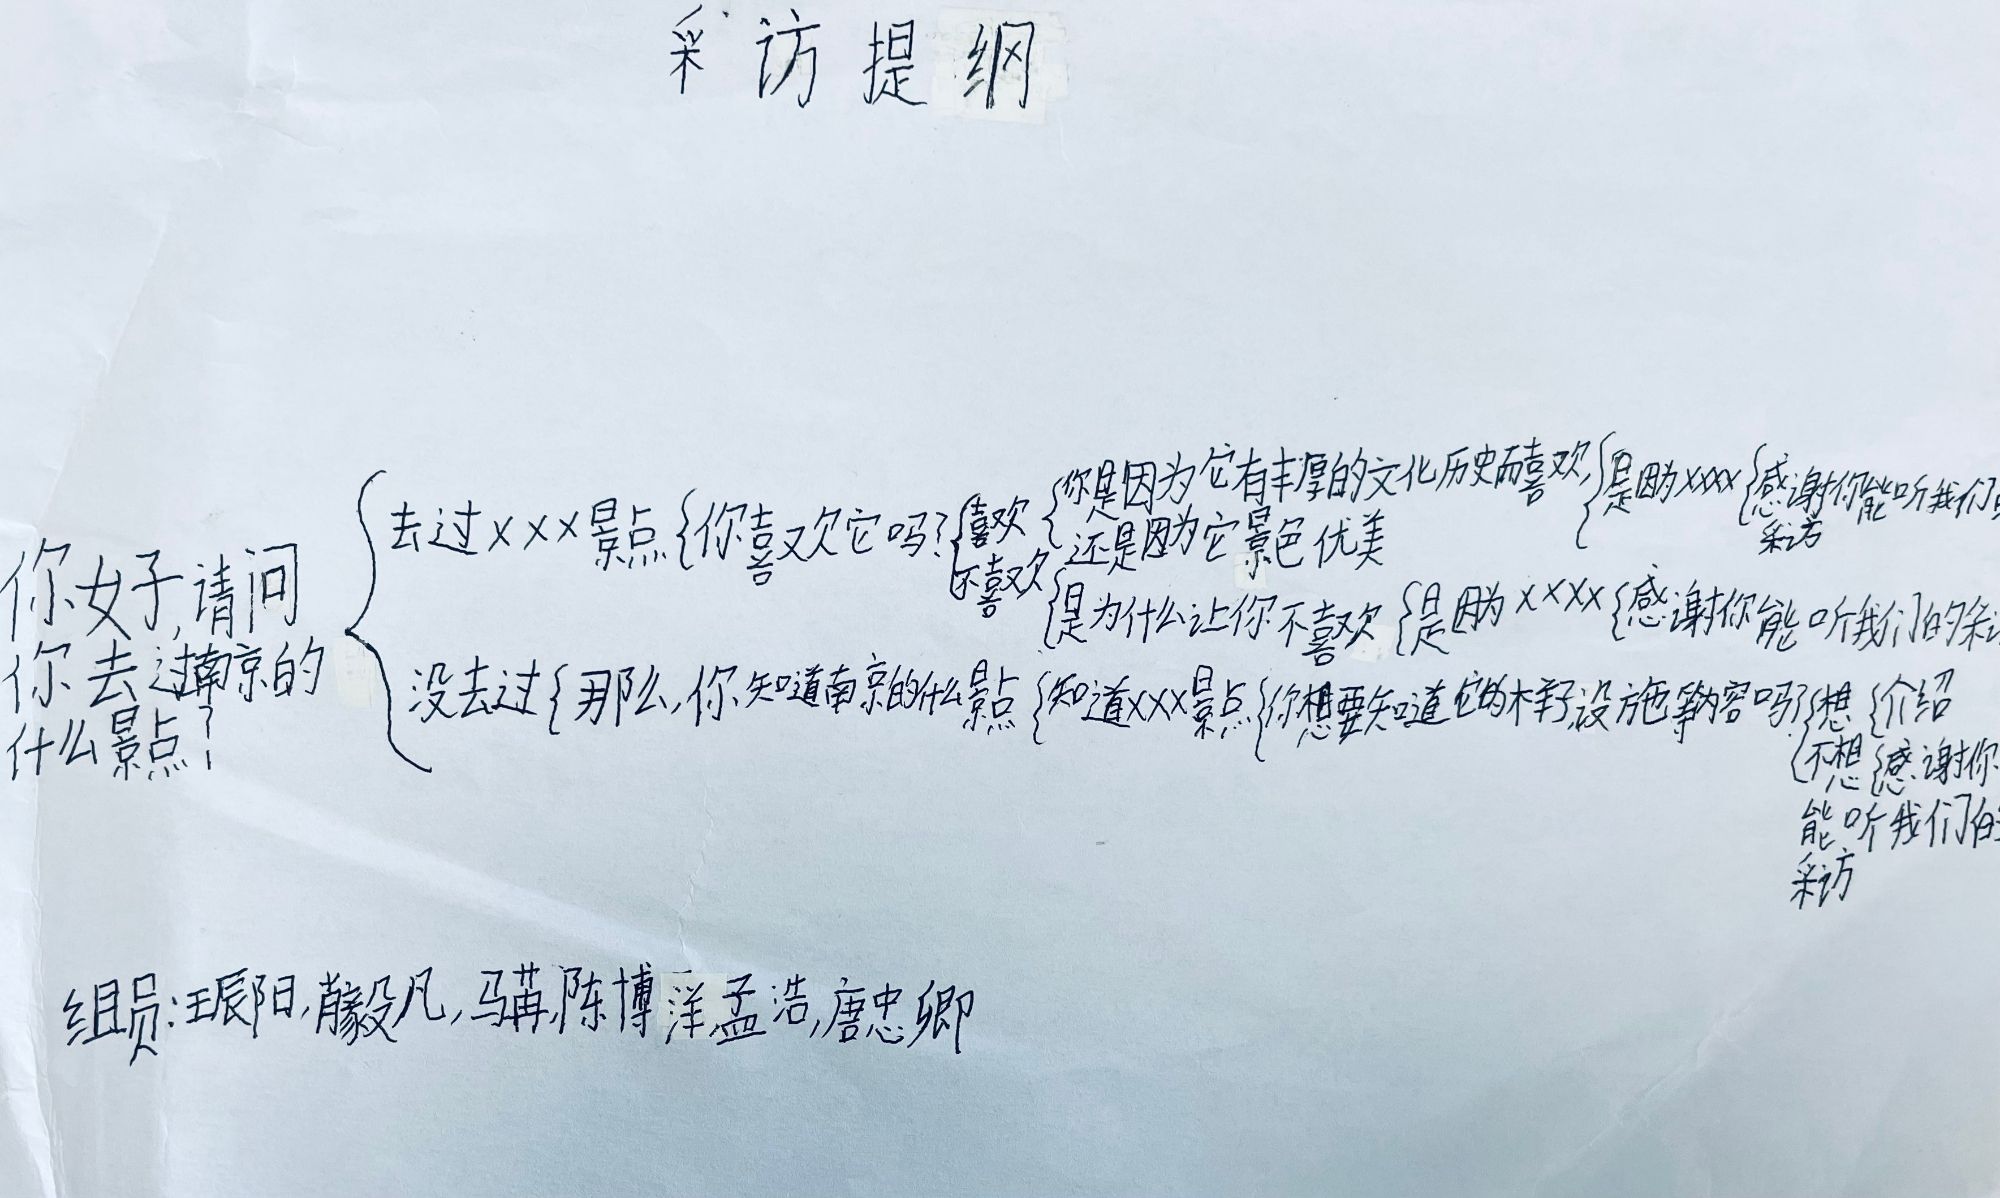 采访提纲
你好,请问
你去过南京的
什么景点?
去过XXX景点{你喜欢它吗?
喜欢{你是因为它有丰厚的文化历史而喜欢,
还是因为它景色优美
{是因为XXXX{感谢你能听我们
采访
不喜欢{是为什么让你不喜欢{是因为XXXX{感谢你能听我们的采
没去过{那么,你知道南京的什么景点{知道XXX景点{你想要知道它的样子,设施等内容吗?{想{介绍
不想{感谢你
能听我们的
采访
组员:王辰阳,毅凡,马苒,陈博洋,孟浩,唐忠卿